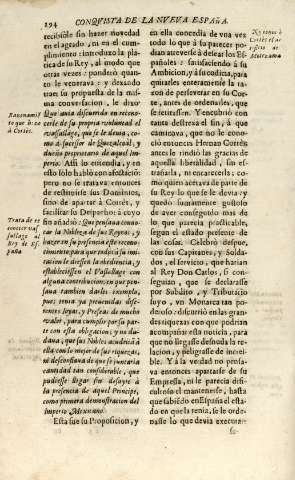 294
CONQUISTA DE LA NUEVA ESPAÑA.
recibirle sin hazer novedad
en el agrado, ni en el cum-
plimiento: introduxo la pla-
tica de su Rey, al modo que
otras vezes: ponderò quan-
to le venerava: y dexando
traer su proposicion de la mis-
ma conversacion, le dixo:
Que avia discurrido en recono-
cerle de su propria voluntad el
vassallage, que se le devia, como
à sucessor de Quezalcoàl, y
dueño propietario de aquel Im-
perio. Assi lo entendia, y en
esto solo hablò con afectaciõ:
pero no se tratava entonces
de restituirle sus Dominios,
sino de apartar à Cortès, y
facilitar su Despacho: à cuyo
fin añadiò: Que pensava convo-
car la Nobleza de sus Reynos, y
hazer en su presencia este recono-
cimiento, para que todos à su imi-
tacion le diessen la obediencia, y
estableciessen el Vassallage con
alguna contribucion, en que pen-
sava tambien darles exemplo,
pues tenia ya prevenidas dife-
rentes Joyas, y Preseas de mucho
valor, para cumplir por su par-
te con esta obligacion; y no du-
dava, que sus Nobles acudirian à
ella con lo mejor de sus riquezas,
ni desconfiava de que se juntaria
cantidad tan considerable, que
pudiesse llegar sin desayre à
la presencia de aquel Principe,
como primera demonstracion del
Imperio Mexicano.
Esta fue su Proposicion, y
Razonamiẽ-
to que hizo
à Cortès.
Trata de re-
conocer vas-
sallage al
Rey de Es-
paña
en ella concedia de vna vez
todo lo que à su parecer po-
dian atreverse à desear los Es-
pañoles: satisfaciendo à su
Ambicion, y à su codicia, para
quitarles enteramente la ra-
zon de perseverar en su Cor-
te, antes de ordenarles, que
se retirassen. Y encubriò con
tanta destreza el fin, à que
caminava, que no le cono-
ciò entonces Hernan Cortès;
antes le rindiò las gracias de
aquella liberalidad, sin es-
trañarla, ni encarecerla; co-
mo quien acetava de parte de
su Rey lo que se le devia: y
quedò sumamente gustoso
de aver conseguido mas de
lo que parecia practicable,
segun el estado presente de
las cosas. Celebrò despues,
con sus Capitanes, y Solda-
dos, el servicio, que harian
al Rey Don Carlos, si con-
seguian, que se declarasse
por Subdito, y Tributario
suyo, vn Monarca tan po-
deroso: discurriò en las gran-
des riquezas con que podrian
acompañar esta noticia, para
que no llegasse desnuda la re-
lacion, y peligrasse de increi-
ble. Y à la verdad no pensa-
va entonces apartarse de su
Empressa, ni le parecia difi-
cultoso el mantenerse, hasta
que sabiendo en España el esta-
do en que la tenia, se le orde-
nasse lo que devia executar: